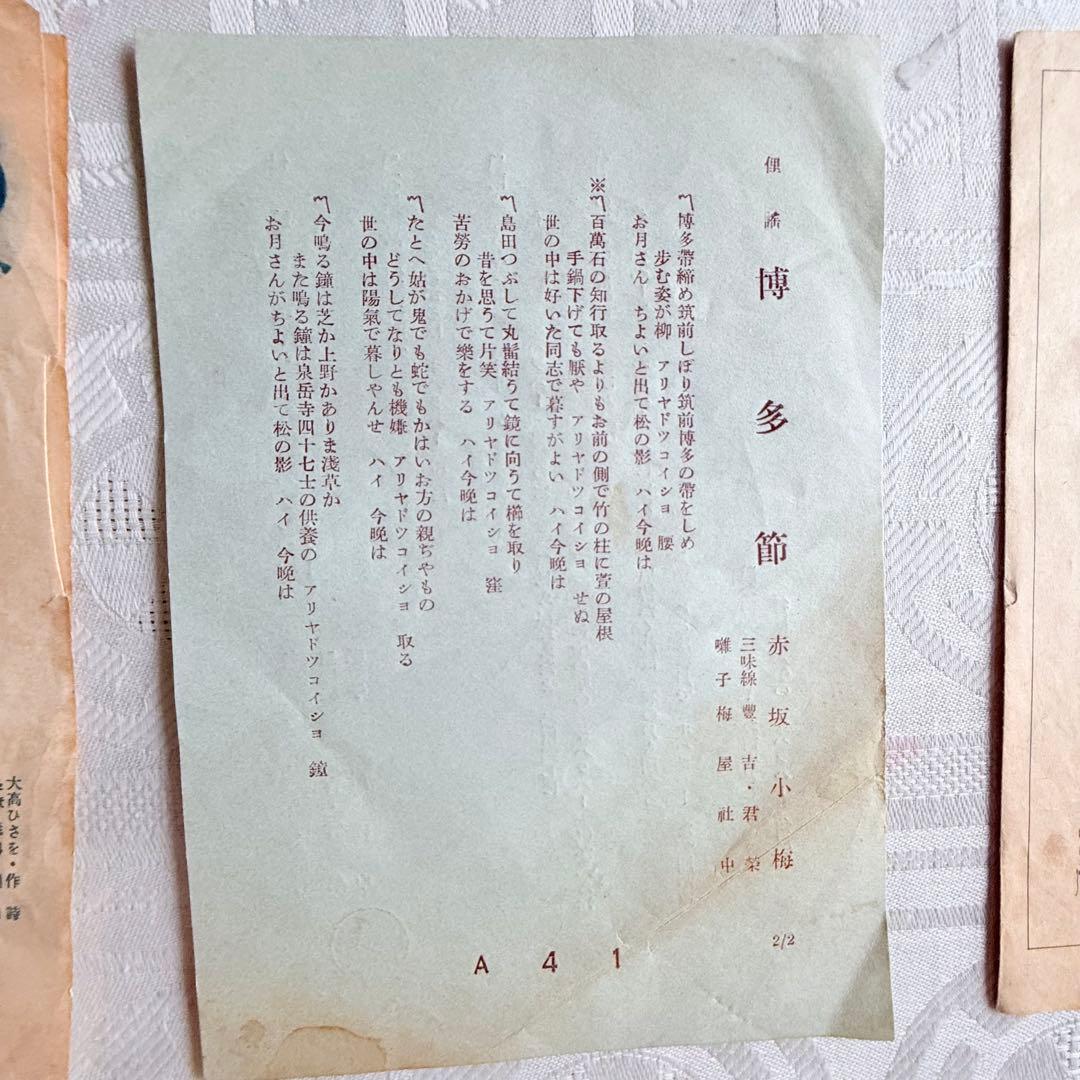 俚謠 博多節
赤坂小梅
三味線 豐吉・君榮
囃子 梅屋社中
〽博多帶締め筑前しぼり筑前博多の帶をしめ
歩む姿が柳 アリヤドツコイシヨ 腰
お月さん ちよいと出て松の影 ハイ今晩は
※〽百萬石の知行取るよりもお前の側で竹の柱に萱の屋根
手鍋下げても厭や アリヤドツコイシヨ せぬ
世の中は好いた同志で暮すがよい ハイ今晩は
〽島田つぶして丸髷結うて鏡に向うて櫛を取り
昔を思うて片笑 アリヤドツコイシヨ 窪
苦勞のおかげで樂をする ハイ今晩は
〽たとへ姑が鬼でも蛇でもかはいお方の親ぢやもの
どうしてなりとも機嫌 アリヤドツコイシヨ 取る
世の中は陽氣で暮しやんせ ハイ 今晩は
〽今鳴る鐘は芝か上野かありま淺草か
また鳴る鐘は泉岳寺四十七士の供養の アリヤドツコイシヨ 鐘
お月さんがちよいと出て松の影 ハイ 今晩は
2/2
A 41
大高ひさを・作詩